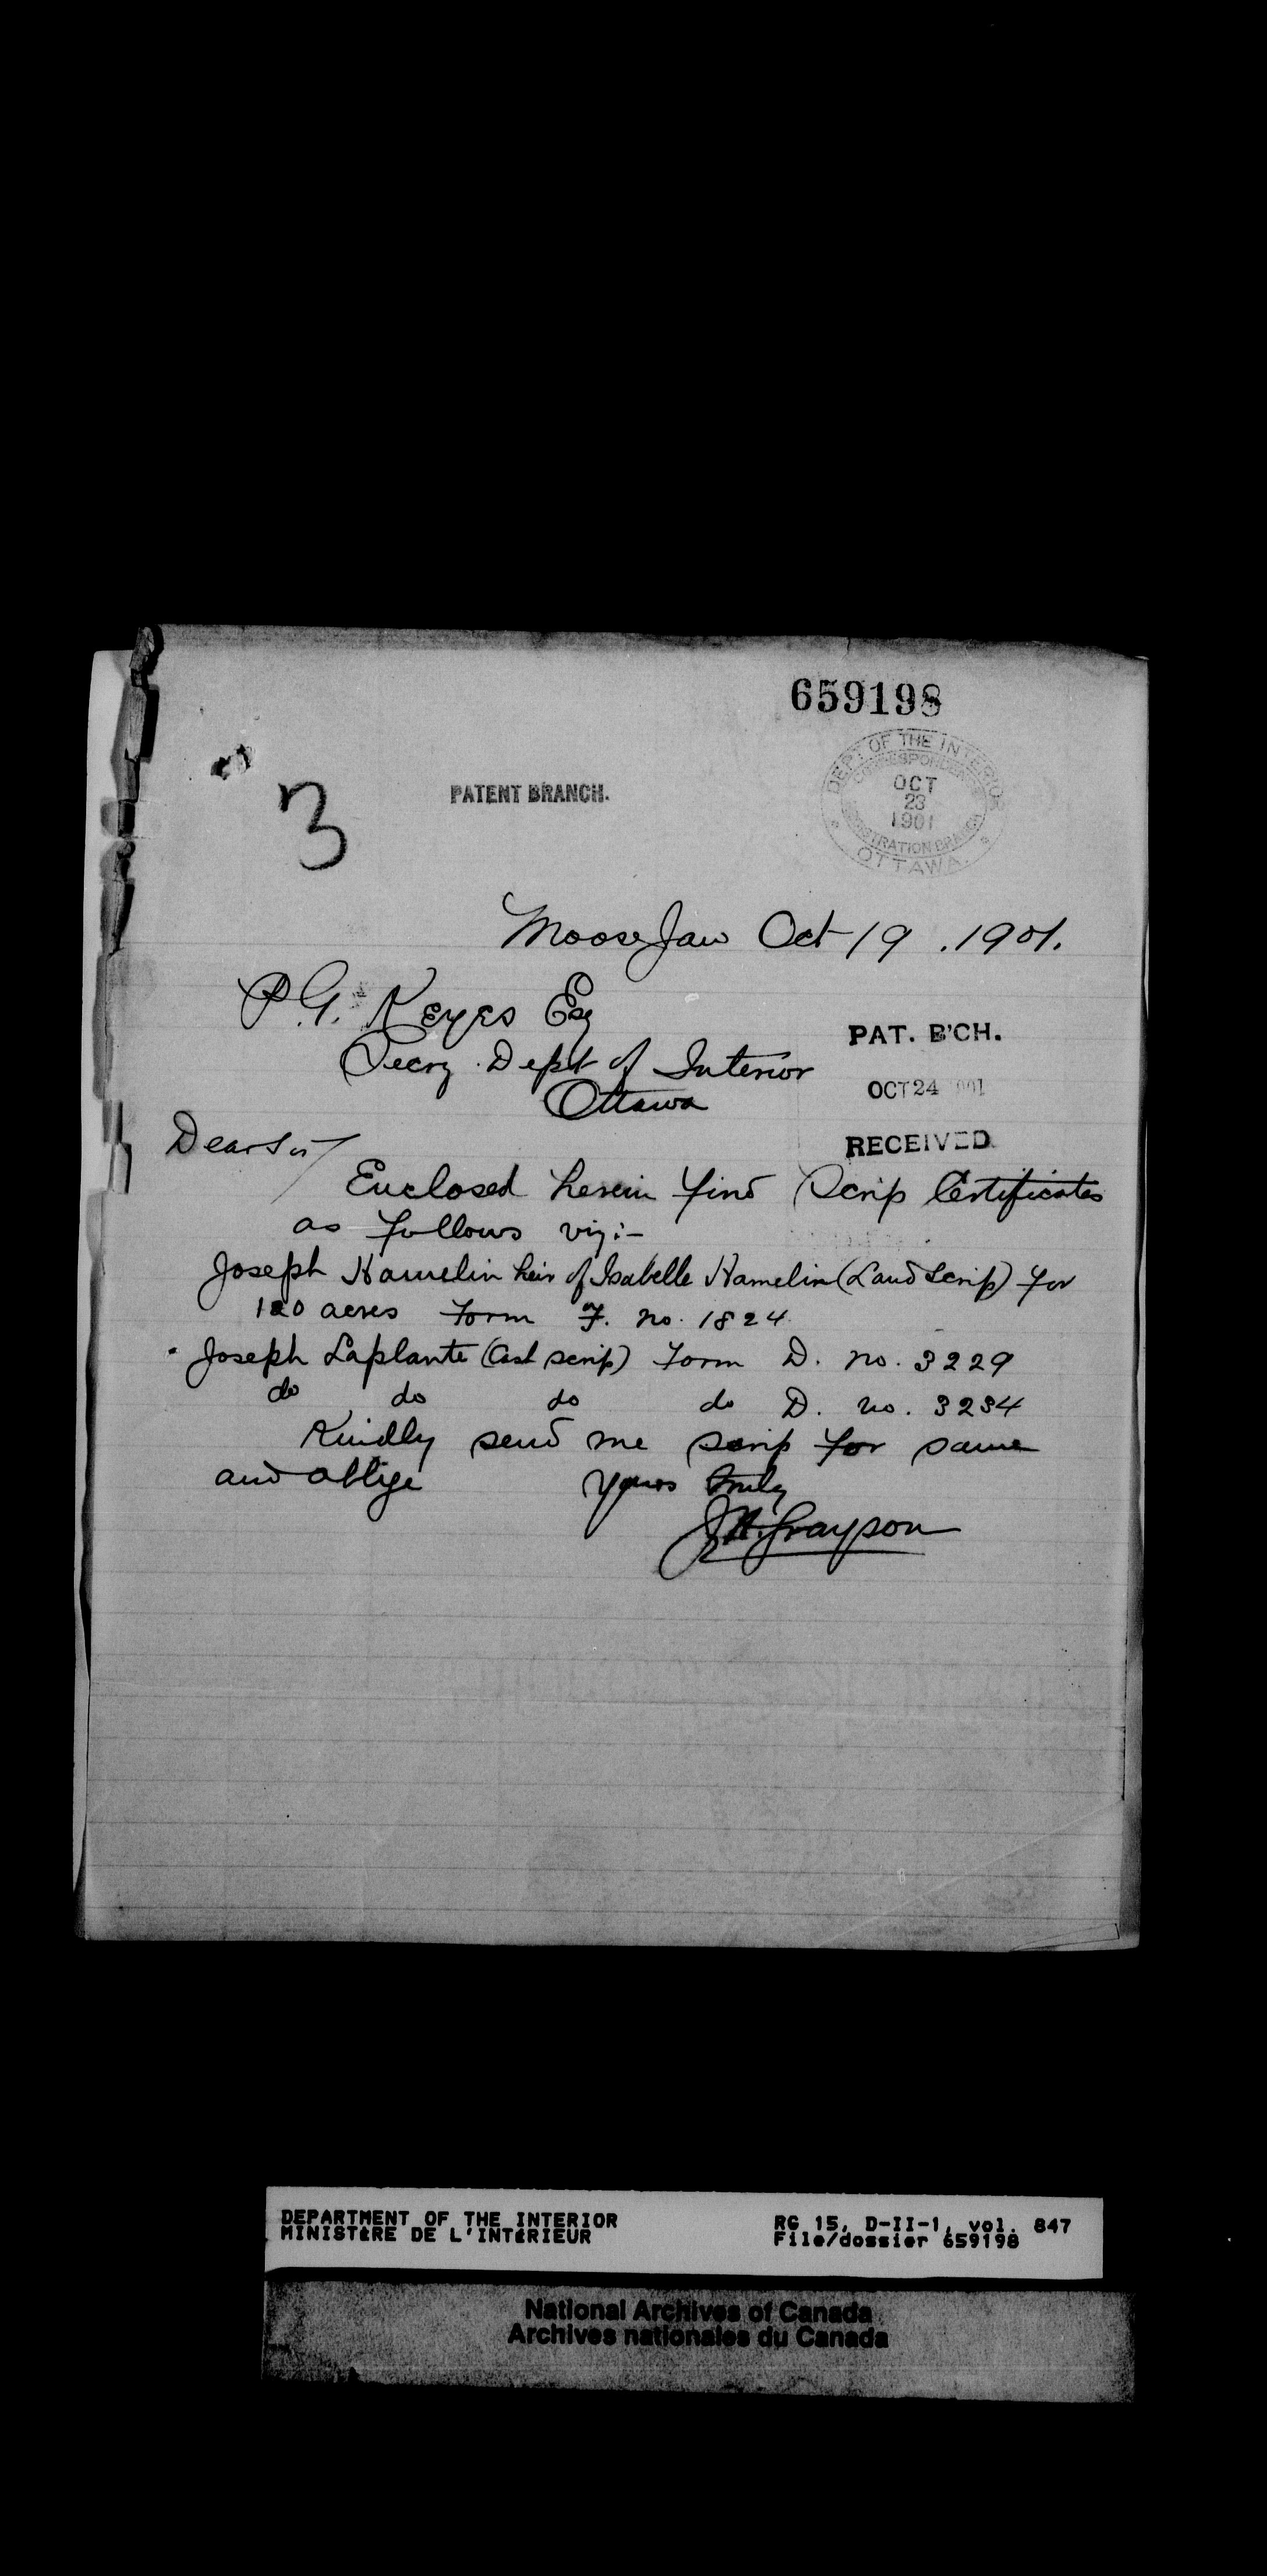 659198
DEPT OF THE INTERIOR
CORRESPONDENCE
OCT
23
1901
REGISTRATION BRANCH
OTTAWA.
3
PATENT BRANCH.
Moose Jaw Oct 19 . 1901.
P. G. Keyes Esq
Secry. Dept of Interior
Ottawa
PAT. B'CH.
OCT 24 1901
RECEIVED
Dear Sir/
Enclosed herein find Scrip Certificates
as follows viz:-
Joseph Hamelin heir of Isabelle Hamelin (Land Scrip) for
120 acres Form F. no. 1824
Joseph Laplante (Cash scrip) Form D. no. 3229
do do do do D. no. 3234
Kindly send me scrip for same
and oblige Yours truly
J.H. Grayson
DEPARTMENT OF THE INTERIOR
MINISTÈRE DE L'INTÉRIEUR
RG 15, D-II-1, vol. 847
File/dossier 659198
National Archives of Canada
Archives nationales du Canada